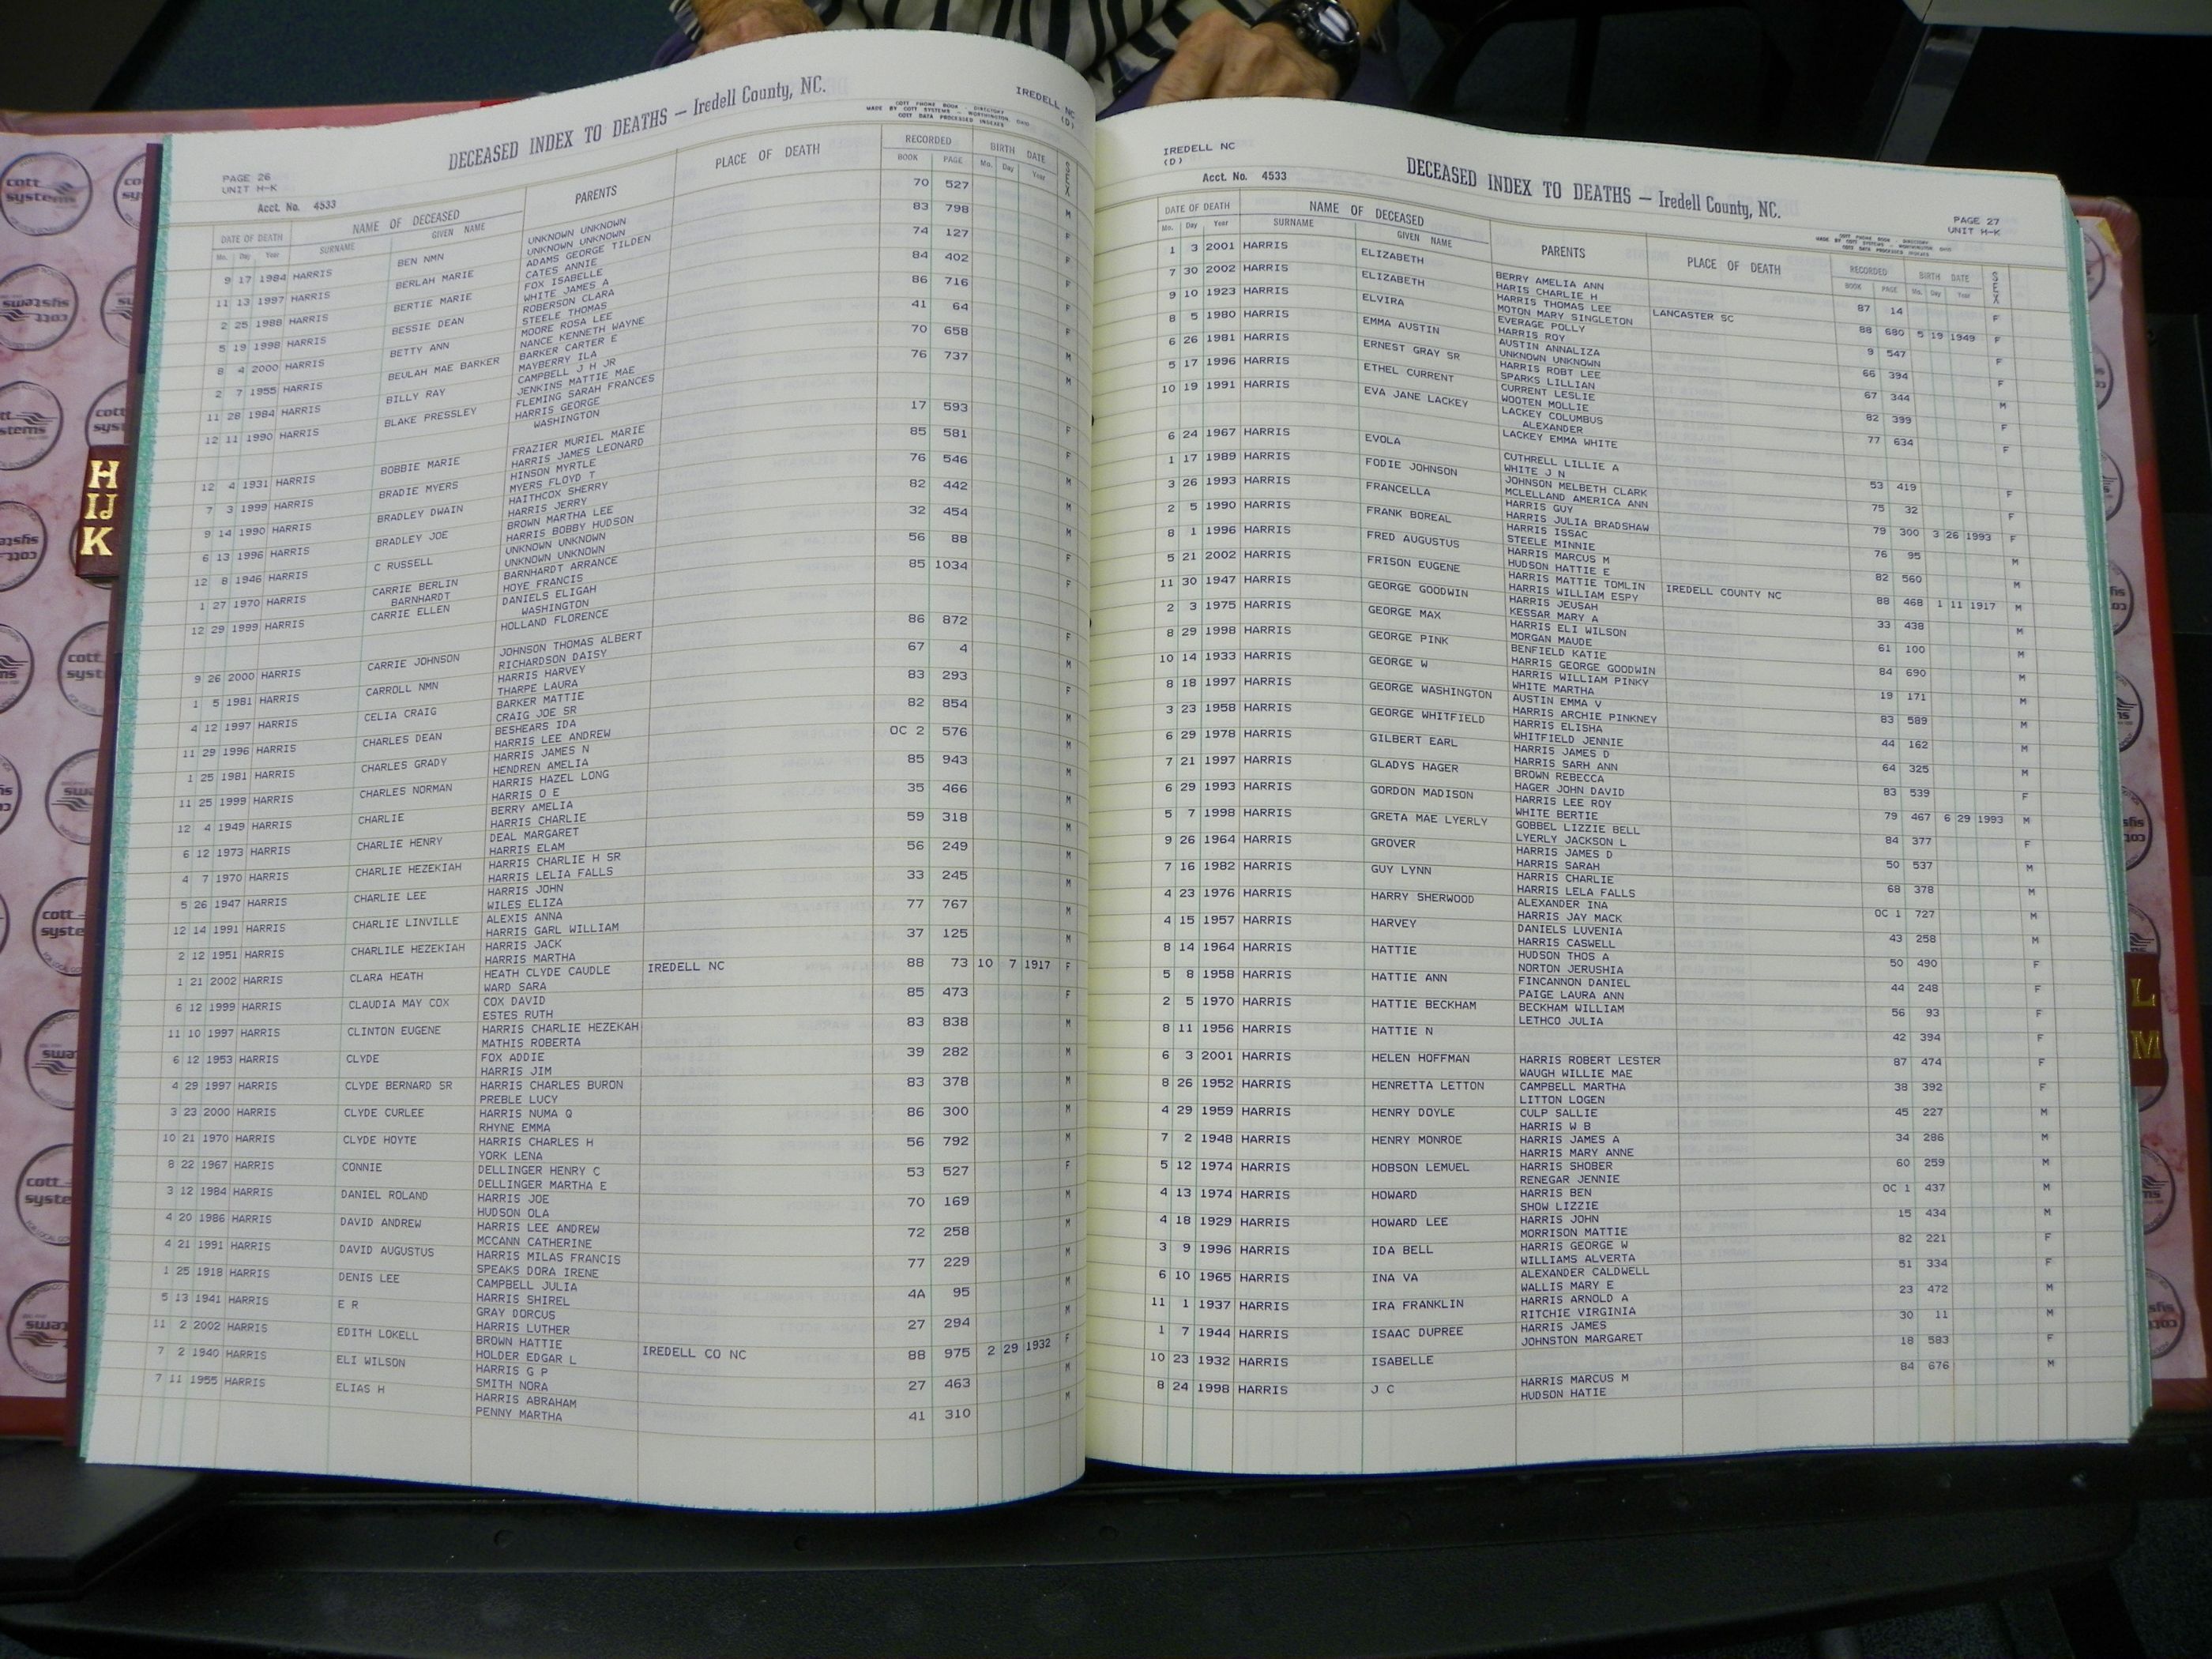 IREDELL NC
(D)
DECEASED INDEX TO DEATHS — Iredell County, NC.
COTT PHONE BOOK - DIRECTORY
MADE BY COTT SYSTEMS - WORTHINGTON, OHIO
COTT DATA PROCESSED INDEXES
PAGE 26
UNIT H-K
Acct. No. 4533
DATE OF DEATH NAME OF DECEASED PARENTS PLACE OF DEATH RECORDED BIRTH DATE SEX
Mo. Day Year SURNAME GIVEN NAME BOOK PAGE Mo. Day Year
9 17 1984 HARRIS BEN NMN UNKNOWN UNKNOWN 70 527 M
UNKNOWN UNKNOWN
11 13 1997 HARRIS BERLAH MARIE ADAMS GEORGE TILDEN 83 798 F
CATES ANNIE
2 25 1988 HARRIS BERTIE MARIE FOX ISABELLE 74 127 F
WHITE JAMES A
5 19 1998 HARRIS BESSIE DEAN ROBERSON CLARA 84 402 F
STEELE THOMAS
8 4 2000 HARRIS BETTY ANN MOORE ROSA LEE 86 716 F
NANCE KENNETH WAYNE
2 7 1955 HARRIS BEULAH MAE BARKER BARKER CARTER E 41 64 F
MAYBERRY ILA
11 28 1984 HARRIS BILLY RAY CAMPBELL J H JR 70 658 M
JENKINS MATTIE MAE
12 11 1990 HARRIS BLAKE PRESSLEY FLEMING SARAH FRANCES 76 737 M
HARRIS GEORGE
WASHINGTON
12 4 1931 HARRIS BOBBIE MARIE FRAZIER MURIEL MARIE 17 593 F
HARRIS JAMES LEONARD
7 3 1999 HARRIS BRADIE MYERS HINSON MYRTLE 85 581 F
MYERS FLOYD T
9 14 1990 HARRIS BRADLEY DWAIN HAITHCOX SHERRY 76 546 M
HARRIS JERRY
6 13 1996 HARRIS BRADLEY JOE BROWN MARTHA LEE 82 442 M
HARRIS BOBBY HUDSON
12 8 1946 HARRIS C RUSSELL UNKNOWN UNKNOWN 32 454 M
UNKNOWN UNKNOWN
1 27 1970 HARRIS CARRIE BERLIN BARNHARDT ARRANCE 56 88 F
BARNHARDT HOYE FRANCIS
12 29 1999 HARRIS CARRIE ELLEN DANIELS ELIGAH 85 1034 F
WASHINGTON
HOLLAND FLORENCE
9 26 2000 HARRIS CARRIE JOHNSON JOHNSON THOMAS ALBERT 86 872 F
RICHARDSON DAISY
1 5 1981 HARRIS CARROLL NMN HARRIS HARVEY 67 4 M
THARPE LAURA
4 12 1997 HARRIS CELIA CRAIG BARKER MATTIE 83 293 F
CRAIG JOE SR
11 29 1996 HARRIS CHARLES DEAN BESHEARS IDA 82 854 M
HARRIS LEE ANDREW
1 25 1981 HARRIS CHARLES GRADY HARRIS JAMES N OC 2 576 M
HENDREN AMELIA
11 25 1999 HARRIS CHARLES NORMAN HARRIS HAZEL LONG 85 943 M
HARRIS O E
12 4 1949 HARRIS CHARLIE BERRY AMELIA 35 466 M
HARRIS CHARLIE
6 12 1973 HARRIS CHARLIE HENRY DEAL MARGARET 59 318 M
HARRIS ELAM
4 7 1970 HARRIS CHARLIE HEZEKIAH HARRIS CHARLIE H SR 56 249 M
HARRIS LELIA FALLS
5 26 1947 HARRIS CHARLIE LEE HARRIS JOHN 33 245 M
WILES ELIZA
12 14 1991 HARRIS CHARLIE LINVILLE ALEXIS ANNA 77 767 M
HARRIS GARL WILLIAM
2 12 1951 HARRIS CHARLILE HEZEKIAH HARRIS JACK 37 125 M
HARRIS MARTHA
1 21 2002 HARRIS CLARA HEATH HEATH CLYDE CAUDLE IREDELL NC 88 73 10 7 1917 F
WARD SARA
6 12 1999 HARRIS CLAUDIA MAY COX COX DAVID 85 473 F
ESTES RUTH
11 10 1997 HARRIS CLINTON EUGENE HARRIS CHARLIE HEZEKAH 83 838 M
MATHIS ROBERTA
6 12 1953 HARRIS CLYDE FOX ADDIE 39 282 M
HARRIS JIM
4 29 1997 HARRIS CLYDE BERNARD SR HARRIS CHARLES BURON 83 378 M
PREBLE LUCY
3 23 2000 HARRIS CLYDE CURLEE HARRIS NUMA Q 86 300 M
RHYNE EMMA
10 21 1970 HARRIS CLYDE HOYTE HARRIS CHARLES H 56 792 M
YORK LENA
8 22 1967 HARRIS CONNIE DELLINGER HENRY C 53 527 F
DELLINGER MARTHA E
3 12 1984 HARRIS DANIEL ROLAND HARRIS JOE 70 169 M
HUDSON OLA
4 20 1986 HARRIS DAVID ANDREW HARRIS LEE ANDREW 72 258 M
MCCANN CATHERINE
4 21 1991 HARRIS DAVID AUGUSTUS HARRIS MILAS FRANCIS 77 229 M
SPEAKS DORA IRENE
1 25 1918 HARRIS DENIS LEE CAMPBELL JULIA 4A 95 M
HARRIS SHIREL
5 13 1941 HARRIS E R GRAY DORCUS 27 294 M
HARRIS LUTHER
11 2 2002 HARRIS EDITH LOKELL BROWN HATTIE IREDELL CO NC 88 975 2 29 1932 F
HOLDER EDGAR L
7 2 1940 HARRIS ELI WILSON HARRIS G P 27 463 M
SMITH NORA
7 11 1955 HARRIS ELIAS H HARRIS ABRAHAM 41 310 M
PENNY MARTHA
IREDELL NC
(D)
Acct. No. 4533
DECEASED INDEX TO DEATHS — Iredell County, NC.
PAGE 27
UNIT H-K
COTT PHONE BOOK - DIRECTORY
MADE BY COTT SYSTEMS - WORTHINGTON, OHIO
COTT DATA PROCESSED INDEXES
DATE OF DEATH NAME OF DECEASED PARENTS PLACE OF DEATH RECORDED BIRTH DATE SEX
Mo. Day Year SURNAME GIVEN NAME BOOK PAGE Mo. Day Year
1 3 2001 HARRIS ELIZABETH BERRY AMELIA ANN 87 14 F
HARIS CHARLIE H
7 30 2002 HARRIS ELIZABETH HARRIS THOMAS LEE LANCASTER SC 88 680 5 19 1949 F
MOTON MARY SINGLETON
9 10 1923 HARRIS ELVIRA EVERAGE POLLY 9 547 F
HARRIS ROY
8 5 1980 HARRIS EMMA AUSTIN AUSTIN ANNALIZA 66 394 F
UNKNOWN UNKNOWN
6 26 1981 HARRIS ERNEST GRAY SR HARRIS ROBT LEE 67 344 M
SPARKS LILLIAN
5 17 1996 HARRIS ETHEL CURRENT CURRENT LESLIE 82 399 F
WOOTEN MOLLIE
10 19 1991 HARRIS EVA JANE LACKEY LACKEY COLUMBUS 77 634 F
ALEXANDER
LACKEY EMMA WHITE
6 24 1967 HARRIS EVOLA CUTHRELL LILLIE A 53 419 F
WHITE J N
1 17 1989 HARRIS FODIE JOHNSON JOHNSON MELBETH CLARK 75 32 F
MCLELLAND AMERICA ANN
3 26 1993 HARRIS FRANCELLA HARRIS GUY 79 300 3 26 1993 F
HARRIS JULIA BRADSHAW
2 5 1990 HARRIS FRANK BOREAL HARRIS ISSAC 76 95 M
STEELE MINNIE
8 1 1996 HARRIS FRED AUGUSTUS HARRIS MARCUS M 82 560 M
HUDSON HATTIE E
5 21 2002 HARRIS FRISON EUGENE HARRIS MATTIE TOMLIN IREDELL COUNTY NC 88 468 1 11 1917 M
HARRIS WILLIAM ESPY
11 30 1947 HARRIS GEORGE GOODWIN HARRIS JEUSAH 33 438 M
KESSAR MARY A
2 3 1975 HARRIS GEORGE MAX HARRIS ELI WILSON 61 100 M
MORGAN MAUDE
8 29 1998 HARRIS GEORGE PINK BENFIELD KATIE 84 690 M
HARRIS GEORGE GOODWIN
10 14 1933 HARRIS GEORGE W HARRIS WILLIAM PINKY 19 171 M
WHITE MARTHA
8 18 1997 HARRIS GEORGE WASHINGTON AUSTIN EMMA V 83 589 M
HARRIS ARCHIE PINKNEY
3 23 1958 HARRIS GEORGE WHITFIELD HARRIS ELISHA 44 162 M
WHITFIELD JENNIE
6 29 1978 HARRIS GILBERT EARL HARRIS JAMES D 64 325 M
HARRIS SARH ANN
7 21 1997 HARRIS GLADYS HAGER BROWN REBECCA 83 539 F
HAGER JOHN DAVID
6 29 1993 HARRIS GORDON MADISON HARRIS LEE ROY 79 467 6 29 1993 M
WHITE BERTIE
5 7 1998 HARRIS GRETA MAE LYERLY GOBBEL LIZZIE BELL 84 377 F
LYERLY JACKSON L
9 26 1964 HARRIS GROVER HARRIS JAMES D 50 537 M
HARRIS SARAH
7 16 1982 HARRIS GUY LYNN HARRIS CHARLIE 68 378 M
HARRIS LELA FALLS
4 23 1976 HARRIS HARRY SHERWOOD ALEXANDER INA OC 1 727 M
HARRIS JAY MACK
4 15 1957 HARRIS HARVEY DANIELS LUVENIA 43 258 M
HARRIS CASWELL
8 14 1964 HARRIS HATTIE HUDSON THOS A 50 490 F
NORTON JERUSHIA
5 8 1958 HARRIS HATTIE ANN FINCANNON DANIEL 44 248 F
PAIGE LAURA ANN
2 5 1970 HARRIS HATTIE BECKHAM BECKHAM WILLIAM 56 93 F
LETHCO JULIA
8 11 1956 HARRIS HATTIE N 42 394 F
6 3 2001 HARRIS HELEN HOFFMAN HARRIS ROBERT LESTER 87 474 F
WAUGH WILLIE MAE
8 26 1952 HARRIS HENRETTA LETTON CAMPBELL MARTHA 38 392 F
LITTON LOGEN
4 29 1959 HARRIS HENRY DOYLE CULP SALLIE 45 227 M
HARRIS W B
7 2 1948 HARRIS HENRY MONROE HARRIS JAMES A 34 286 M
HARRIS MARY ANNE
5 12 1974 HARRIS HOBSON LEMUEL HARRIS SHOBER 60 259 M
RENEGAR JENNIE
4 13 1974 HARRIS HOWARD HARRIS BEN OC 1 437 M
SHOW LIZZIE
4 18 1929 HARRIS HOWARD LEE HARRIS JOHN 15 434 M
MORRISON MATTIE
3 9 1996 HARRIS IDA BELL HARRIS GEORGE W 82 221 F
WILLIAMS ALVERTA
6 10 1965 HARRIS INA VA ALEXANDER CALDWELL 51 334 F
WALLIS MARY E
11 1 1937 HARRIS IRA FRANKLIN HARRIS ARNOLD A 23 472 M
RITCHIE VIRGINIA
1 7 1944 HARRIS ISAAC DUPREE HARRIS JAMES 30 11 M
JOHNSTON MARGARET
10 23 1932 HARRIS ISABELLE 18 583 F
8 24 1998 HARRIS J C HARRIS MARCUS M 84 676 M
HUDSON HATIE
H
IJ
K
L
M
cott
systems